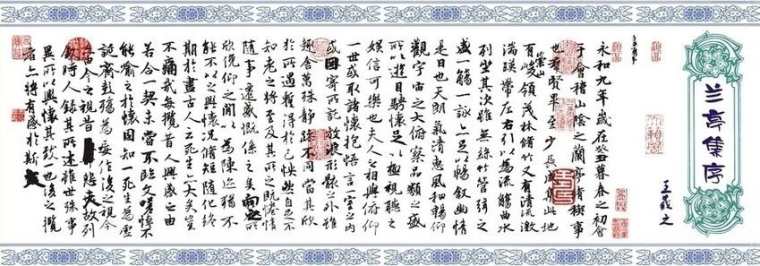 兰亭集序
王羲之
永和九年歲在癸丑暮春之初會
于會稽山陰之蘭亭脩禊事
也群賢畢至少長咸集此地
有崇山峻領茂林脩竹又有清流激
湍暎帶左右引以為流觴曲水
列坐其次雖無絲竹管弦之
盛一觴一詠亦足以暢敘幽情
是日也天朗氣清惠風和暢仰
觀宇宙之大俯察品類之盛
所以遊目騁懷足以極視聽之
娛信可樂也夫人之相與俯仰
一世或取諸懷抱悟言一室之內
或因寄所託放浪形骸之外雖
趣舍萬殊靜躁不同當其欣
於所遇暫得於己快然自足不
知老之將至及其所之既惓情
隨事遷感慨係之矣向之所
欣俛仰之閒以為陳迹猶不
能不以之興懷況脩短隨化終
期於盡古人云死生亦大矣豈
不痛哉每攬昔人興感之由
若合一契未嘗不臨文嗟悼不
能喻之於懷固知一死生為虛
誕齊彭殤為妄作後之視今
亦由今之視昔悲夫故列
敘時人錄其所述雖世殊事
異所以興懷其致一也後之攬
者亦將有感於斯